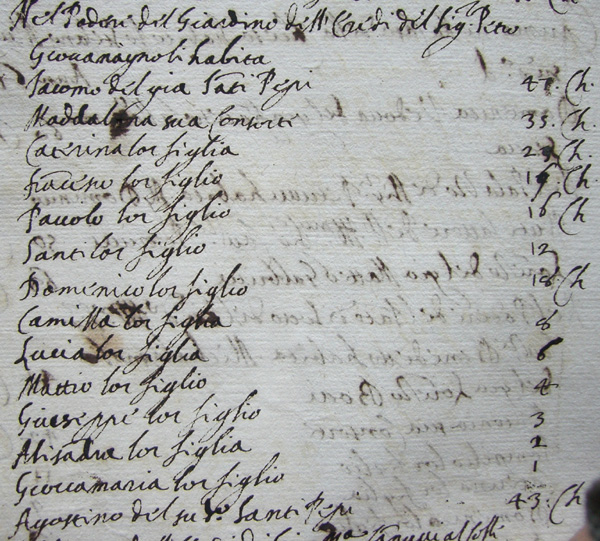 Nel Podere del Giardino dell Eredi del Sig. Petro
Giovanagnoli habita
Iacomo del gia Santi Pepi 47. Ch.
Maddalena sua Consorte 35. Ch.
Caterina lor figlia 2 Ch.
francesco lor figlio 1 Ch.
Pavolo lor figlio 16 Ch
Santi lor figlio 12
Domenico lor figlio 10 Ch
Camilla lor figlia 8
Lucia lor figlia 6
Mattio lor figlio 4
Giuseppe lor figlio 3
Alisadra lor figlia 2
Giovamaria lor figlio 1
Agostino del su do. Santi Pepi 43. Ch